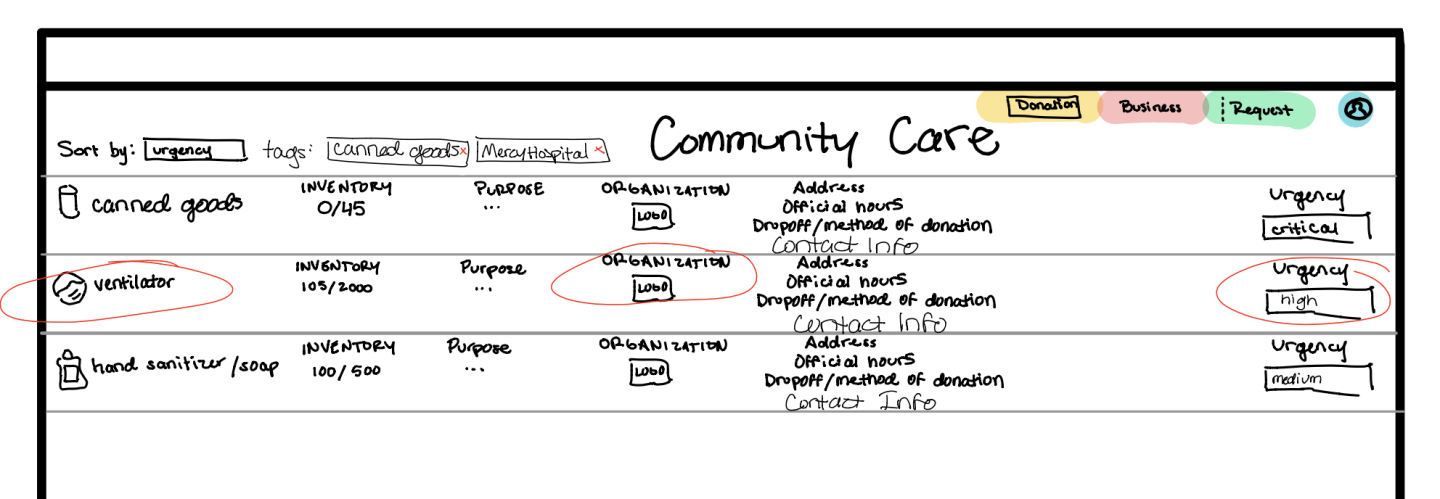 Donation Business Request
Community Care
Sort by: urgency tags: canned goods x MercyHospital x
canned goods
INVENTORY
0/45
PURPOSE
...
ORGANIZATION
LOGO
Address
Official hours
Dropoff/method of donation
Contact Info
Urgency
critical
ventilator
INVENTORY
105/2000
Purpose
...
ORGANIZATION
LOGO
Address
Official hours
Dropoff/method of donation
Contact Info
Urgency
high
hand sanitizer/soap
INVENTORY
100/500
Purpose
...
ORGANIZATION
LOGO
Address
Official hours
Dropoff/method of donation
Contact Info
Urgency
medium